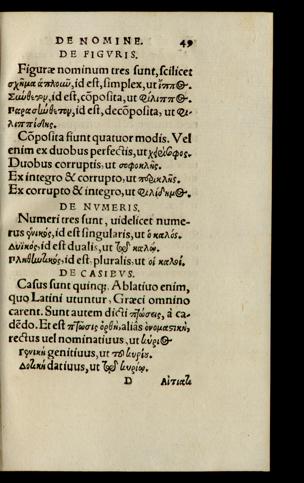 DE NOMINE. 49
DE FIGVRIS.
Figuræ nominum tres sunt, scilicet
σχῆμα ἁπλοῦν, id est, simplex, ut ἵππος.
Σύνθετον, id est, cōposita, ut Φίλιππος.
Παρασύνθετον, id est, decōposita, ut Φι-
λιππίδης.
Cōposita fiunt quatuor modis. Vel
enim ex duobus perfectis, ut χερσ
Duobus corruptis, ut σοφοκλῆς.
Ex integro & corrupto, ut
Ex corrupto & integro, ut Φιλόδημος.
DE NVMERIS.
Numeri tres sunt, uidelicet nume-
rus ἑνικός, id est singularis, ut ὁ καλός.
Δυϊκός, id est dualis, ut τὼ καλώ.
Πληθυντικός, id est, pluralis, ut οἱ καλοί.
DE CASIBVS.
Casus sunt quinq;. Ablatiuo enim,
quo Latini utuntur, Græci omnino
carent. Sunt autem dicti πτώσεις, à ca-
dēdo. Et est πτῶσις ὀρθή, aliâs ὀνομαστική,
rectus uel nominatiuus, ut κύριος
Γενική genitiuus, ut τοῦ κυρίου.
Δοτική datiuus, ut τῷ κυρίῳ.
D Αἰτιατι